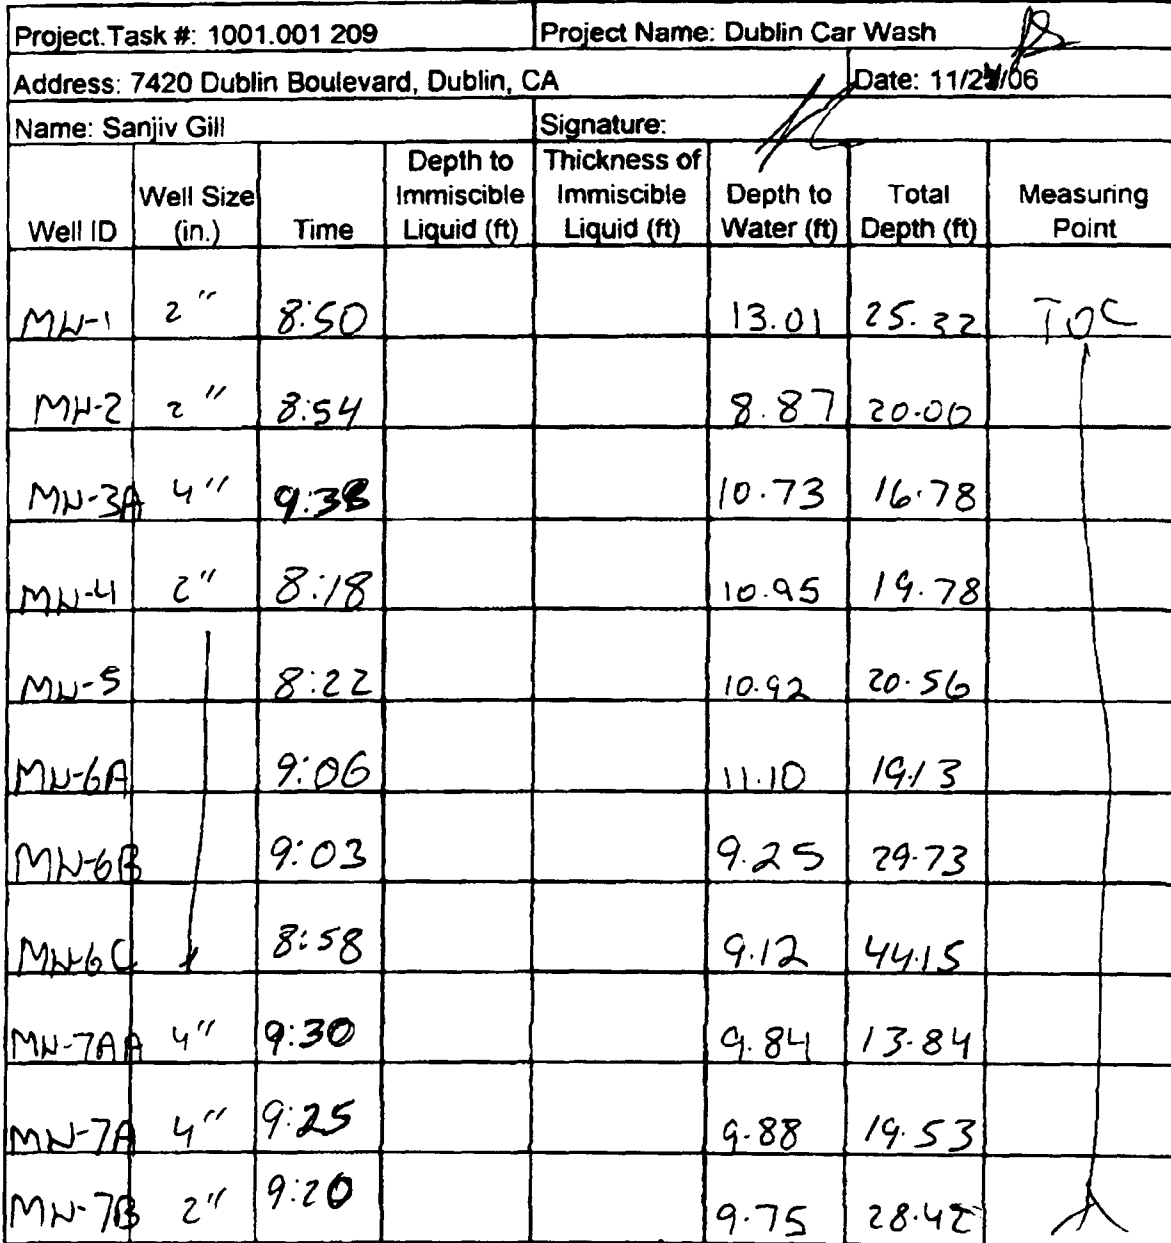 Project.Task #: 1001.001 209 Project Name: Dublin Car Wash
Address: 7420 Dublin Boulevard, Dublin, CA Date: 11/2 /06
Name: Sanjiv Gill Signature:
Well ID Well Size (in.) Time Depth to Immiscible Liquid (ft) Thickness of Immiscible Liquid (ft) Depth to Water (ft) Total Depth (ft) Measuring Point
MW-1 2" 8:50 13.01 25.32 TOC
MW-2 2" 8:54 8.87 20.00
MW-3A 4" 9:38 10.73 16.78
MW-4 2" 8:18 10.95 19.78
MW-5 8:22 10.92 20.56
MW-6A 9:06 11.10 19.13
MW-6B 9:03 9.25 29.73
MW-6C 8:58 9.12 44.15
MW-7AA 4" 9:30 9.84 13.84
MW-7A 4" 9:25 9.88 19.53
MW-7B 2" 9:20 9.75 28.42